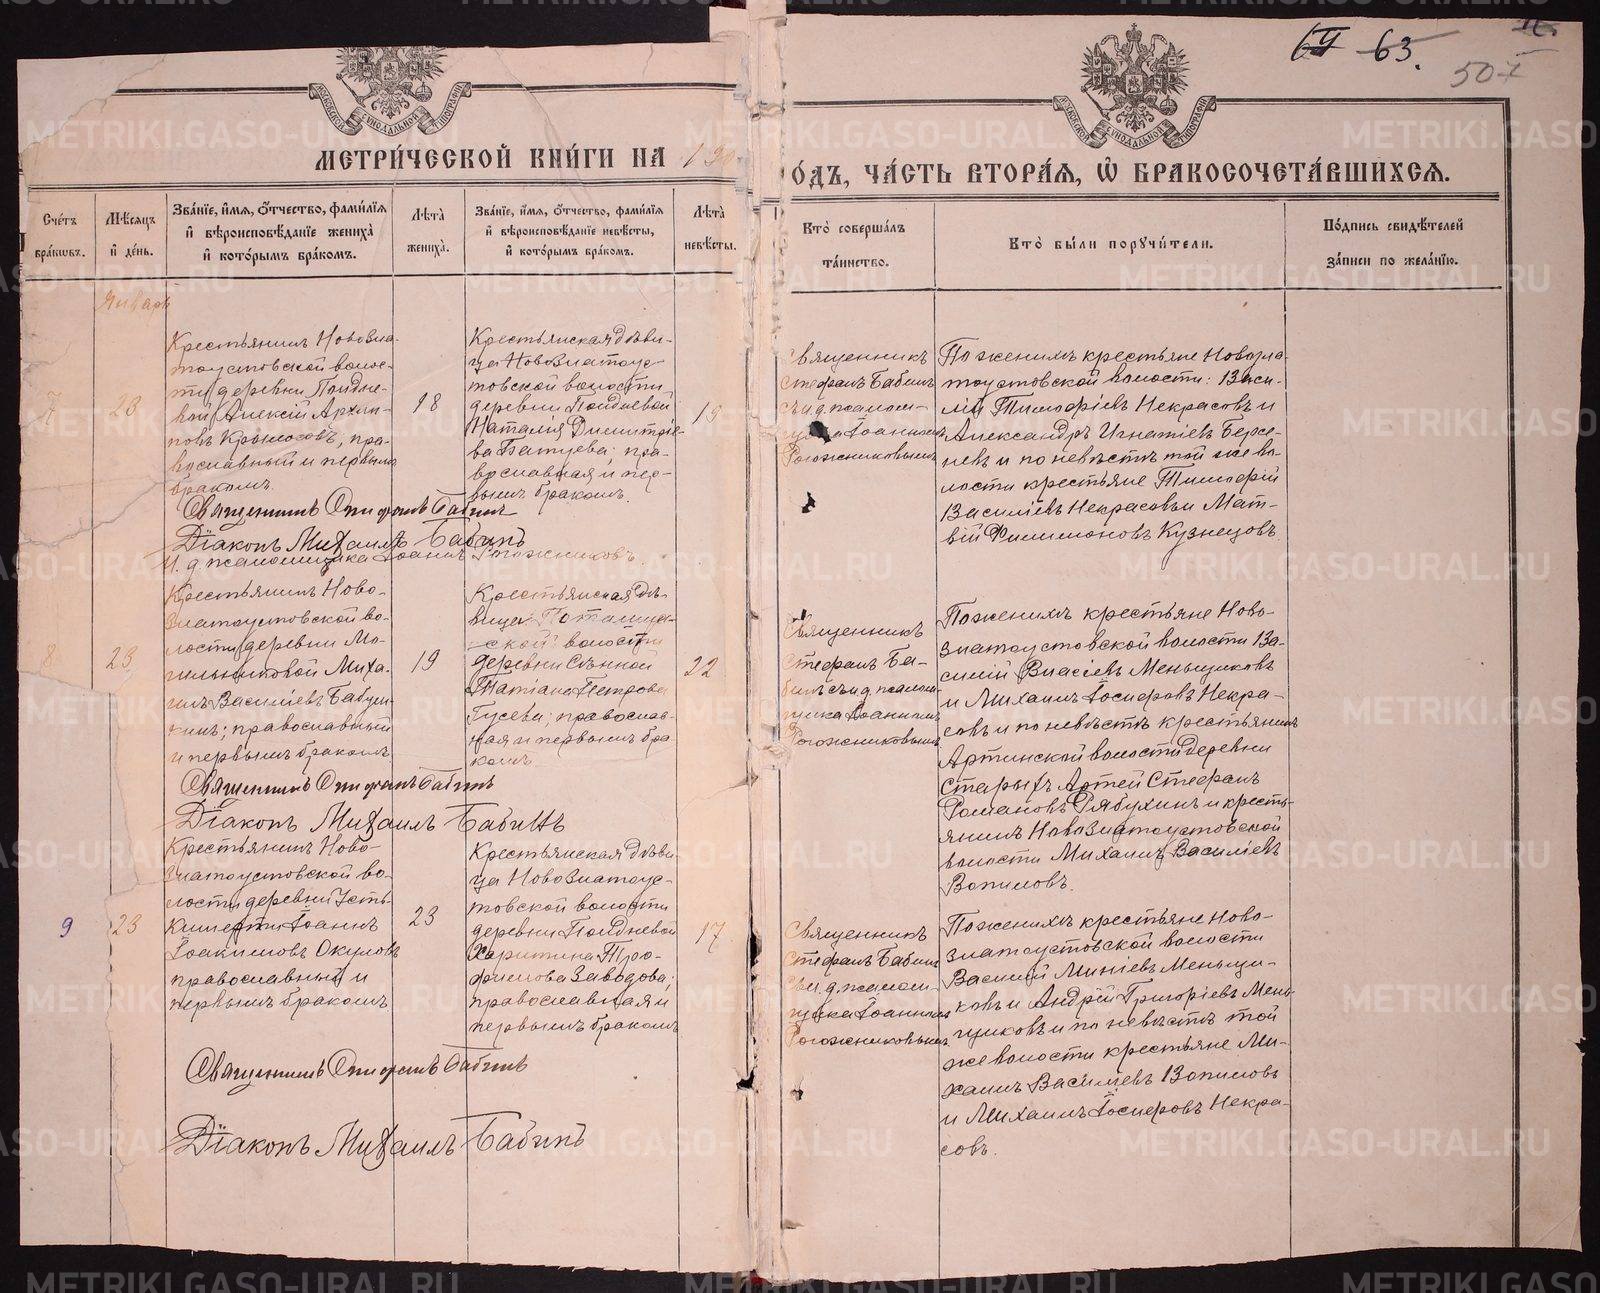 64 63.
507
МОСКОВСКОЙ СУНОДАЛЬНОЙ ТУПОГРАФІИ
МОСКОВСКОЙ СУНОДАЛЬНОЙ ТУПОГРАФІИ
МЕТРИ́ЧЕСКОЙ КНИ́ГИ НА 190
ОДЪ, ЧА́СТЬ ВТОРА́Я, Ѡ БРАКОСОЧЕТА́ВШИХСЯ.
Сче́тъ бра́кωвъ.
Мѣ́сяцъ и де́нь.
Зва́нїе, и́мя, ѻ́тчество, фами́лїя и вѣроисповѣ́данїе жениха̀ и кото́рымъ бра́комъ.
Лѣ́та жениха̀.
Зва́нїе, и́мя, ѻ́тчество, фами́лїя и вѣроисповѣ́данїе невѣ́сты, и кото́рымъ бра́комъ.
Лѣ́та невѣ́сты.
Кто̀ соверша́лъ та́инство.
Кто̀ бы́ли поручи́тели.
По́дпись свидѣ́телей за́писи по жела́нїю.
Январь
7
23
Крестьянинъ Новозла-
тоустовской волос-
ти деревни Поидне-
вой Алексій Архип-
повъ Крылосовъ, пра-
вославный и первымъ
бракомъ.
18
Крестьянская дѣви-
ца Новозлатоус-
товской волости
деревни Поидневой
Наталія Димитріе-
ва Батуева; пра-
вославная и пер-
вымъ бракомъ.
19
Священникъ
Стефанъ Бабинъ
съ и.д. псалом-
Іоанномъ
Рогожниковымъ
По женихѣ крестьяне Новозла-
тоустовской волости: Васи-
лій Тимофіевъ Некрасовъ и
Александръ Игнатіевъ Берсе-
невъ и по невѣстѣ той же во-
лости крестьяне Тимофій
Василіевъ Некрасовъ и Мат-
вій Филимоновъ Кузнецовъ.
Священникъ Стефанъ Бабинъ
Діаконъ Михаилъ Бабинъ
И. д. псаломщика Іоаннъ Рогожниковъ.
8
23
Крестьянинъ Ново-
златоустовской во-
лости деревни Мо-
гильниковой Миха-
илъ Василіевъ Бабуш-
кинъ; православный
и первымъ бракомъ
19
Крестьянская дѣ-
вица Поташин-
ской волости
деревни Сѣнной
Татіана Петрова
Гусева; православ-
ная и первымъ бра-
комъ
22
Священникъ
Стефанъ Ба-
бинъ съ и.д. псалом-
щика Іоанномъ
Рогожниковымъ
По женихѣ крестьяне Ново-
златоустовской волости Ва-
силій Власіевъ Меньщиковъ
и Михаилъ Іосифовъ Некра-
совъ и по невѣстѣ крестьянинъ
Артинской волости деревни
Старыхъ Артей Стефанъ
Романовъ Рябухинъ и кресть-
янинъ Новозлатоустовской
волости Михаилъ Василіевъ
Вопиловъ.
Священникъ Стефанъ Бабинъ
Діаконъ Михаилъ Бабинъ
9
23
Крестьянинъ Ново-
златоустовской во-
лости деревни Усть-
Кишерти Іоаннъ
Іоакимовъ Окуловъ
православный и
первымъ бракомъ
23
Крестьянская дѣви-
ца Новозлатоус-
товской волости
деревни Поидневой
Харитина Тро-
фимова Заводова;
православная и
первымъ бракомъ
17
Священникъ
Стефанъ Бабинъ
съ и.д. псалом-
щика Іоанномъ
Рогожниковымъ
По женихѣ крестьяне Ново-
златоустовской волости
Василій Миніевъ Меньщи-
ковъ и Андрій Григоріевъ Мень-
щиковъ и по невѣстѣ той
же волости крестьяне Ми-
хаилъ Василіевъ Вопиловъ
и Михаилъ Іосифовъ Некра-
совъ.
Священникъ Стефанъ Бабинъ
Діаконъ Михаилъ Бабинъ
METRIKI.GASO-URAL.RU